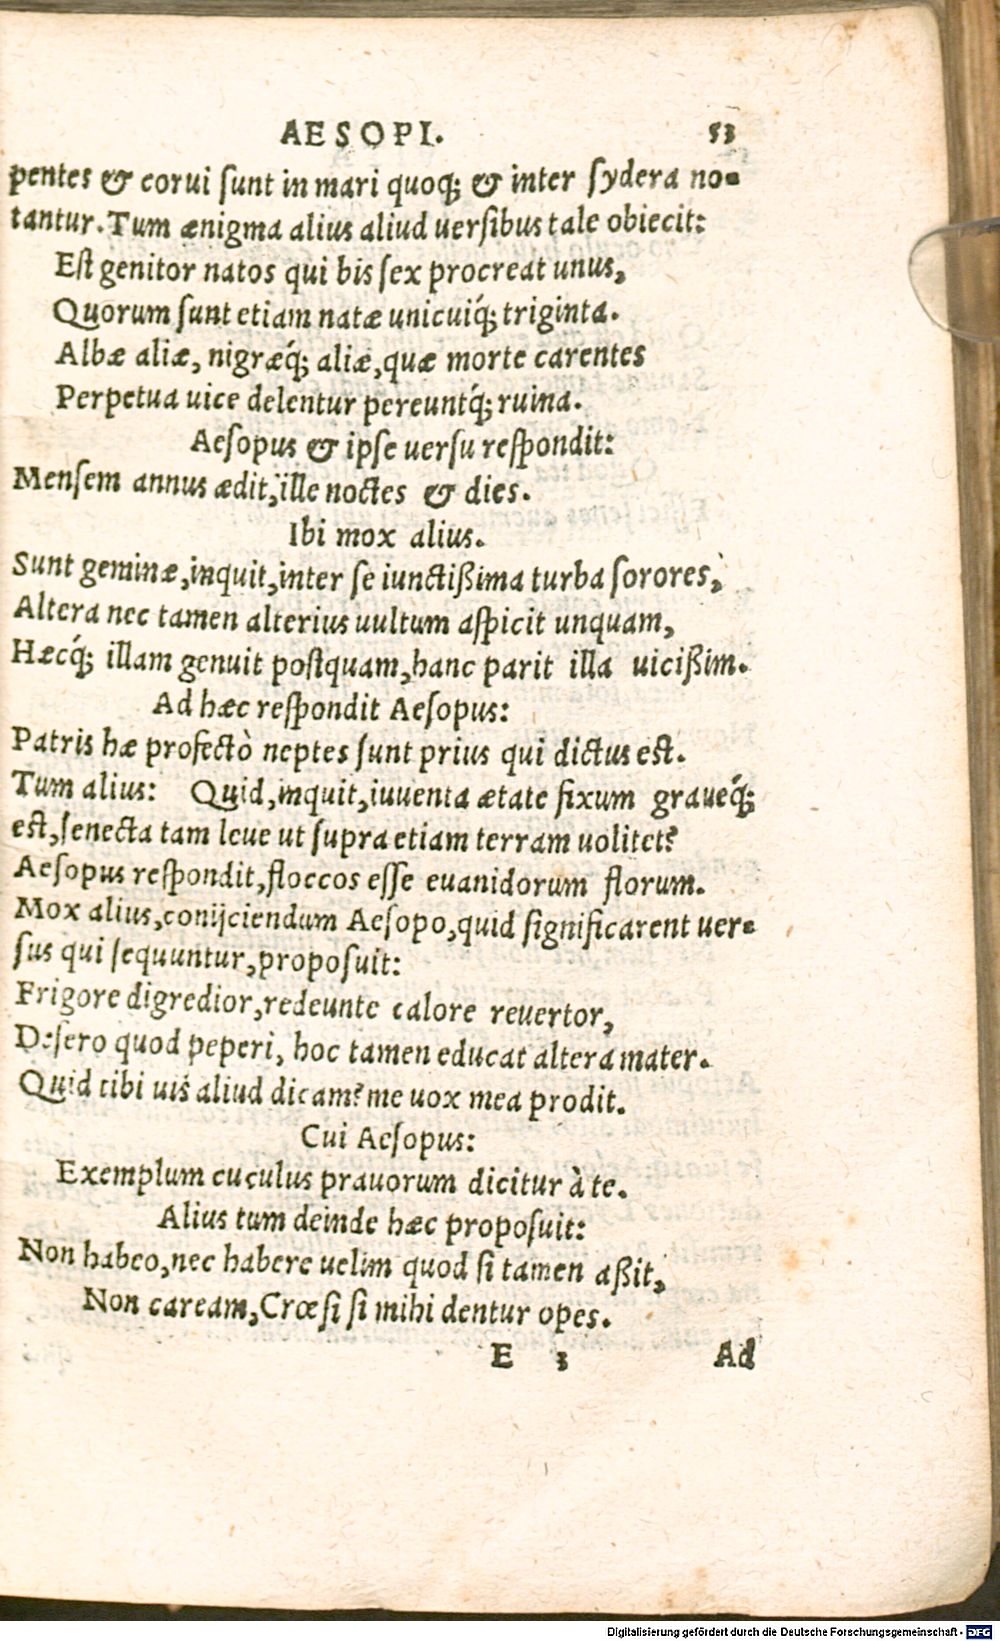 AESOPI. 53
pentes & corui sunt in mari quoq; & inter sydera no-
tantur. Tum ænigma alius aliud uersibus tale obiecit:
Est genitor natos qui bis sex procreat unus,
Quorum sunt etiam natæ unicuiq́; triginta.
Albæ aliæ, nigræq́; aliæ, quæ morte carentes
Perpetua uice delentur pereuntq́; ruina.
Aesopus & ipse uersu respondit:
Mensem annus ædit, ille noctes & dies.
Ibi mox alius.
Sunt geminæ, inquit, inter se iunctißima turba sorores,
Altera nec tamen alterius uultum aspicit unquam,
Hæcq́; illam genuit postquam, hanc parit illa uicißim.
Ad hæc respondit Aesopus:
Patris hæ profectò neptes sunt prius qui dictus est.
Tum alius: Quid, inquit, iuuenta ætate fixum graueq́;
est, senecta tam leue ut supra etiam terram uolitet?
Aesopus respondit, floccos esse euanidorum florum.
Mox alius, conijciendum Aesopo, quid significarent uer-
sus qui sequuntur, proposuit:
Frigore digredior, redeunte calore reuertor,
Desero quod peperi, hoc tamen educat altera mater.
Quid tibi uis aliud dicam? me uox mea prodit.
Cui Aesopus:
Exemplum cuculus prauorum dicitur à te.
Alius tum deinde hæc proposuit:
Non habeo, nec habere uelim quod si tamen aßit,
Non caream, Crœsi si mihi dentur opes.
E 3 Ad
Digitalisierung gefördert durch die Deutsche Forschungsgemeinschaft - DFG